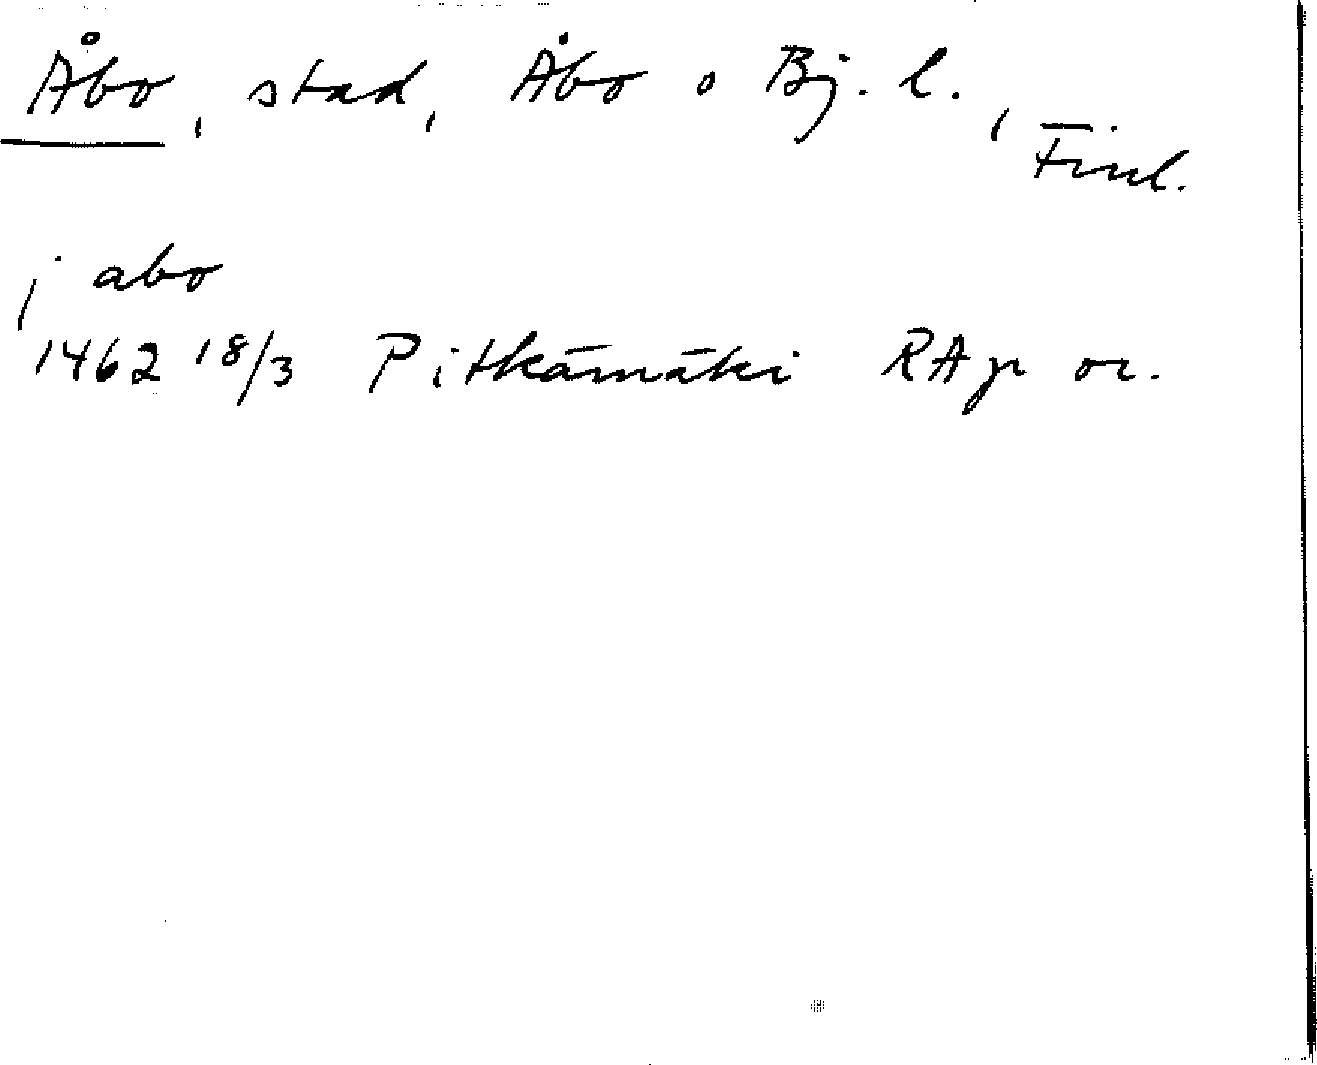 Åbo, stad, Åbo o Bj. l., Finl.
j abo
1462 18/3 Pitkämäki RAp or.